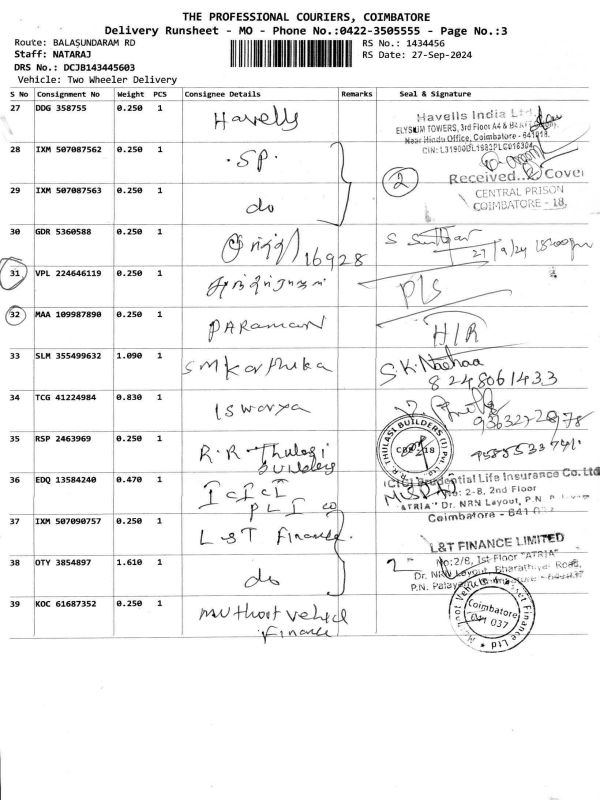 THE PROFESSIONAL COURIERS, COIMBATORE
Delivery Runsheet - MO - Phone No.:0422-3505555 - Page No.:3
Route: BALASUNDARAM RD
RS No.: 1434456
Staff: NATARAJ
RS Date: 27-Sep-2024
DRS No.: DCJB143445603
Vehicle: Two Wheeler Delivery
S No Consignment No Weight PCS Consignee Details Remarks Seal & Signature
27 DDG 358755 0.250 1 Havells
Havells India Ltd
ELYSIUM TOWERS, 3rd Floor A4 &
Near Hindu Office, Coimbatore - 641018.
CIN: L31900DL1983PLC016304
28 IXM 507087562 0.250 1 SP.
2 Received Cover
29 IXM 507087563 0.250 1 do
CENTRAL PRISON
COIMBATORE - 18.
30 GDR 5360588 0.250 1 16928
27/9/24
31 VPL 224646119 0.250 1
PLS
32 MAA 109987890 0.250 1 PARAMAN H/R
33 SLM 355499632 1.090 1 SM Karthika S.K.
8248061433
34 TCG 41224984 0.830 1 Iswarya
35 RSP 2463969 0.250 1 R.R Thulasi
Builders
R.R. THULASI BUILDERS (I) Pvt. Ltd.
36 EDQ 13584240 0.470 1 ICICI
PLI co
ICICI Prudential Life Insurance Co. Ltd
No: 2-8, 2nd Floor
"ATRIA" Dr. NRN Layout, P.N
Coimbatore - 641
37 IXM 507090757 0.250 1 L&T Finance.
L&T FINANCE LIMITED
38 OTY 3854897 1.610 1 do
2
No:2/8, 1st Floor "ATRIA"
Dr. NRN Layout, Bharathiyar Road,
P.N. Palayam, Coimbatore - 641037
39 KOC 61687352 0.250 1 Muthoot vehicle
Finance
Coimbatore
641 037